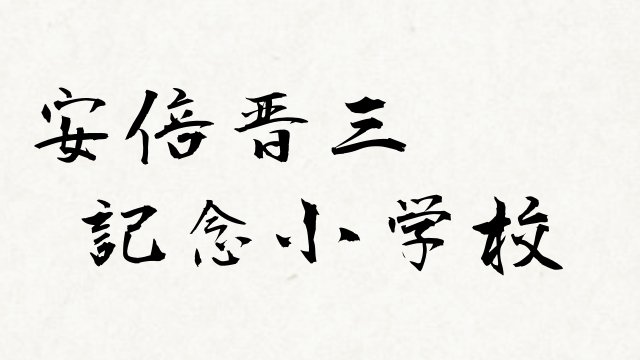 安倍晋三
記念小学校